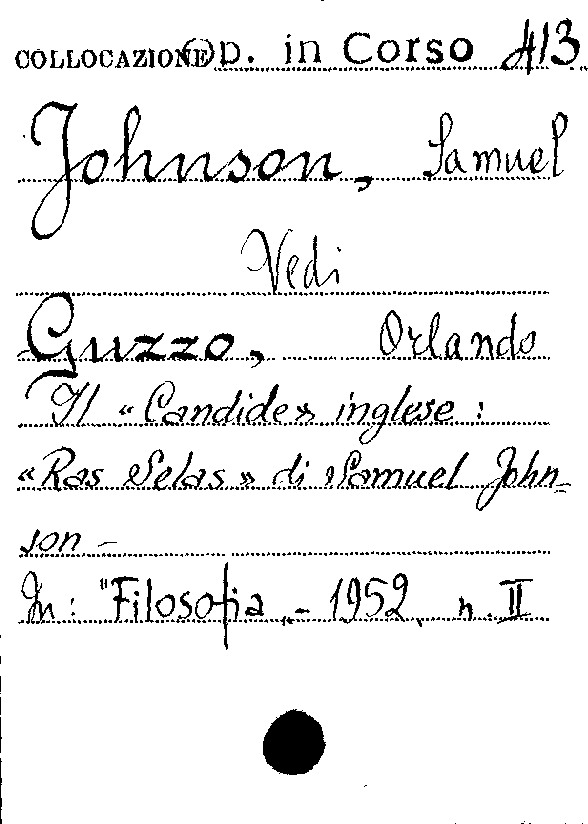 COLLOCAZIONE Op. in Corso 413
Johnson, Samuel
Vedi
Guzzo, Orlando
Il «Candide» inglese :
«Ras Selas» di Samuel John=
son -
In: "Filosofia„ - 1952, n. II